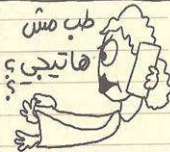 طب مش
هاتيجي؟
؟